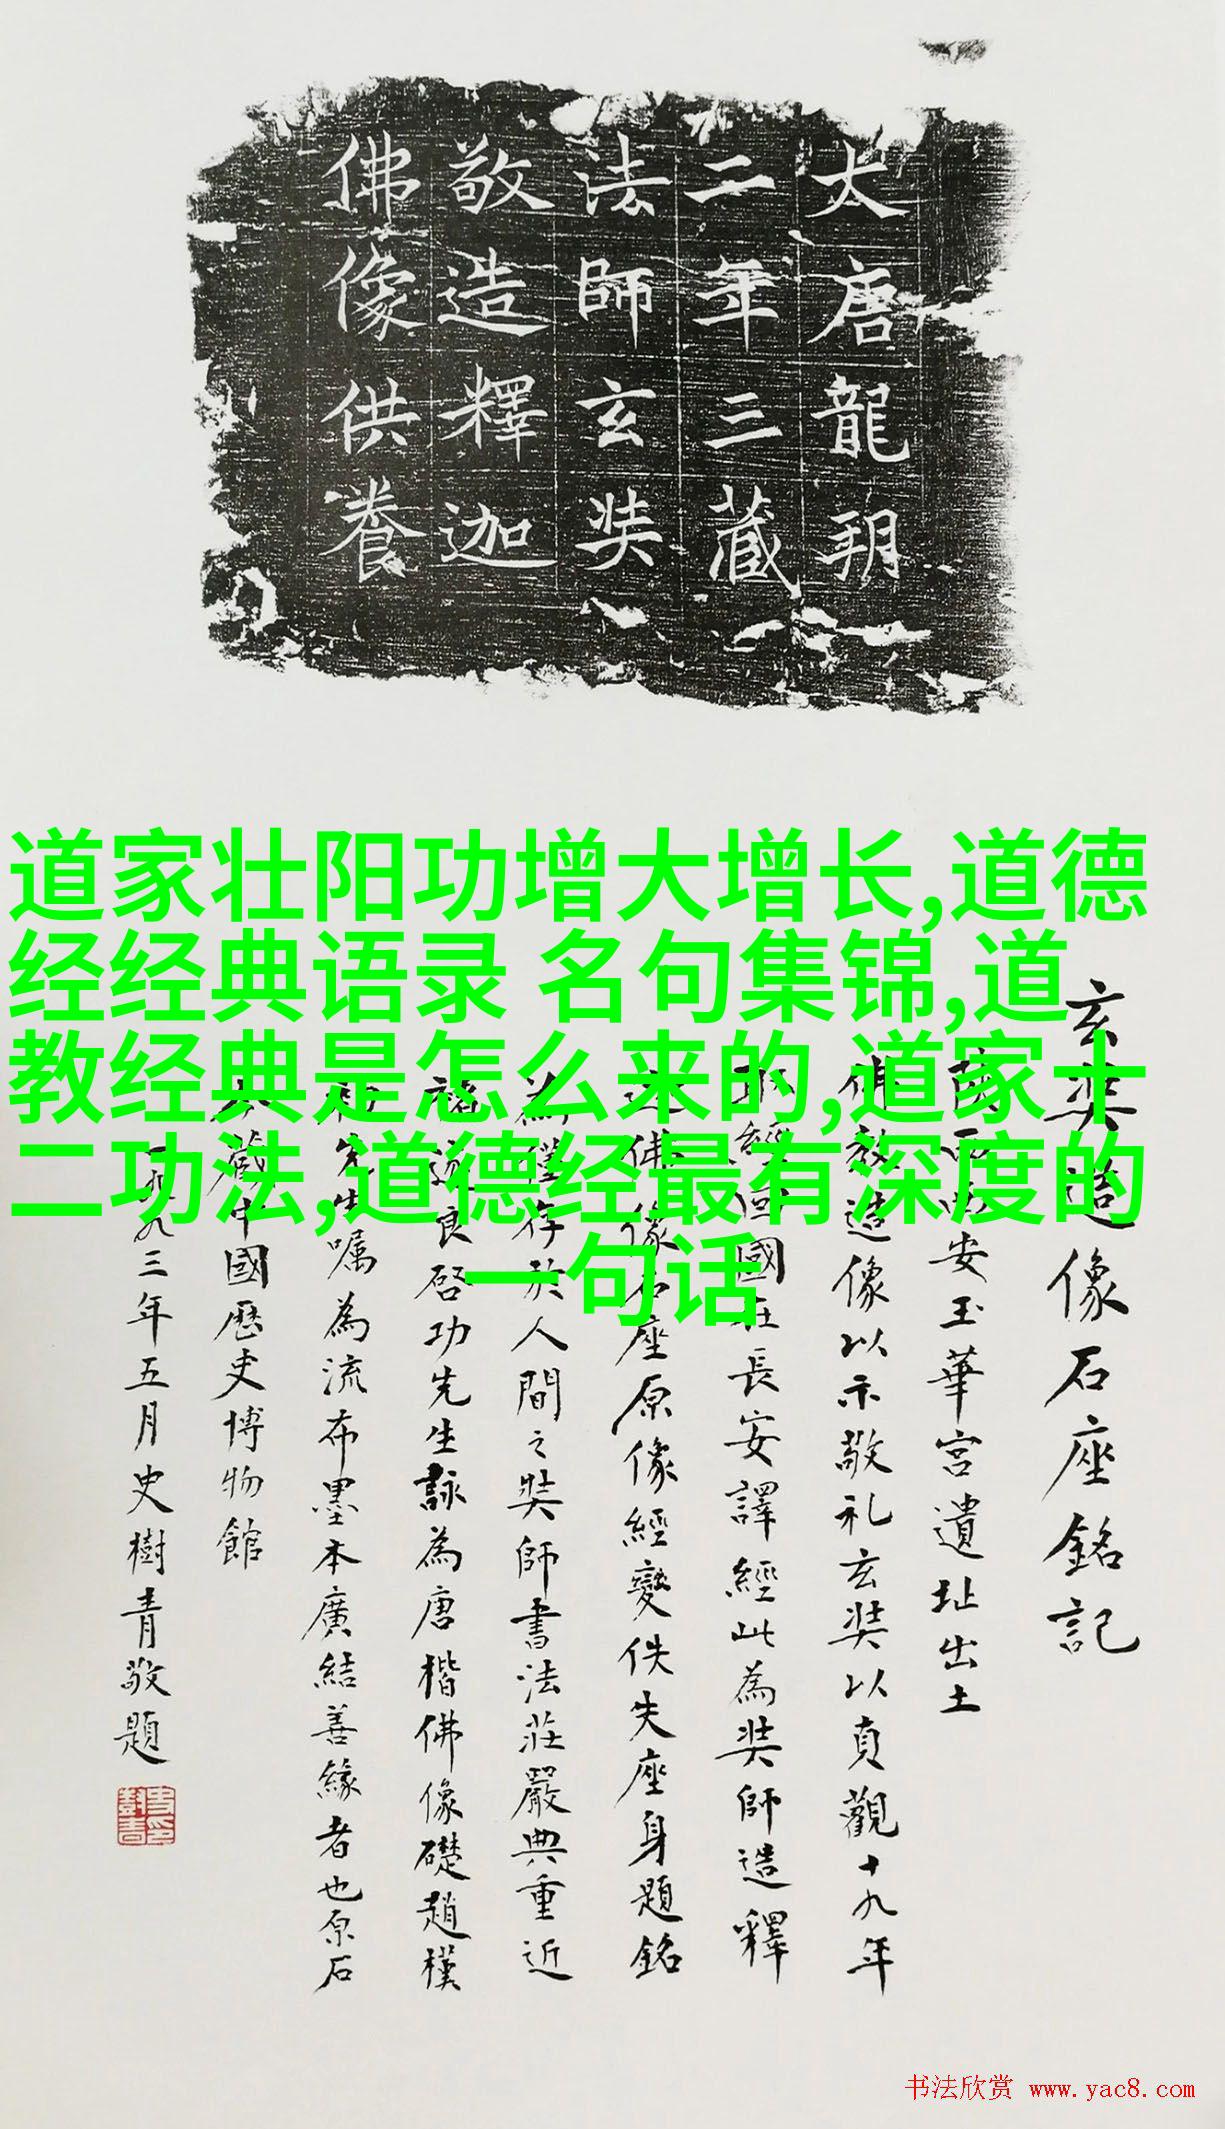 太唐龍朔
二年三藏
法師玄奘
敬造釋迦
佛像供養
道家壮阳功增大增长,道德
经经典语录 名句集锦,道
教经典是怎么来的,道家十
二功法,道德经最有深度的
一句话
玄奘造像石座銘記
安玉華宮遺址出土
佛教造像以示敬礼玄奘以貞觀十九年
經回國在長安譯經此為奘師造釋
佛像石座原像經變佚失座身題銘
為僅存於人間之奘師書法莊嚴典重近
褚遂良启功先生詠為唐楷佛像礎趙樸
初先生嘱為流布墨本廣結善緣者也原石
藏中國歷史博物館
一九九三年五月史樹青敬題
书法欣赏 www.yac8.com